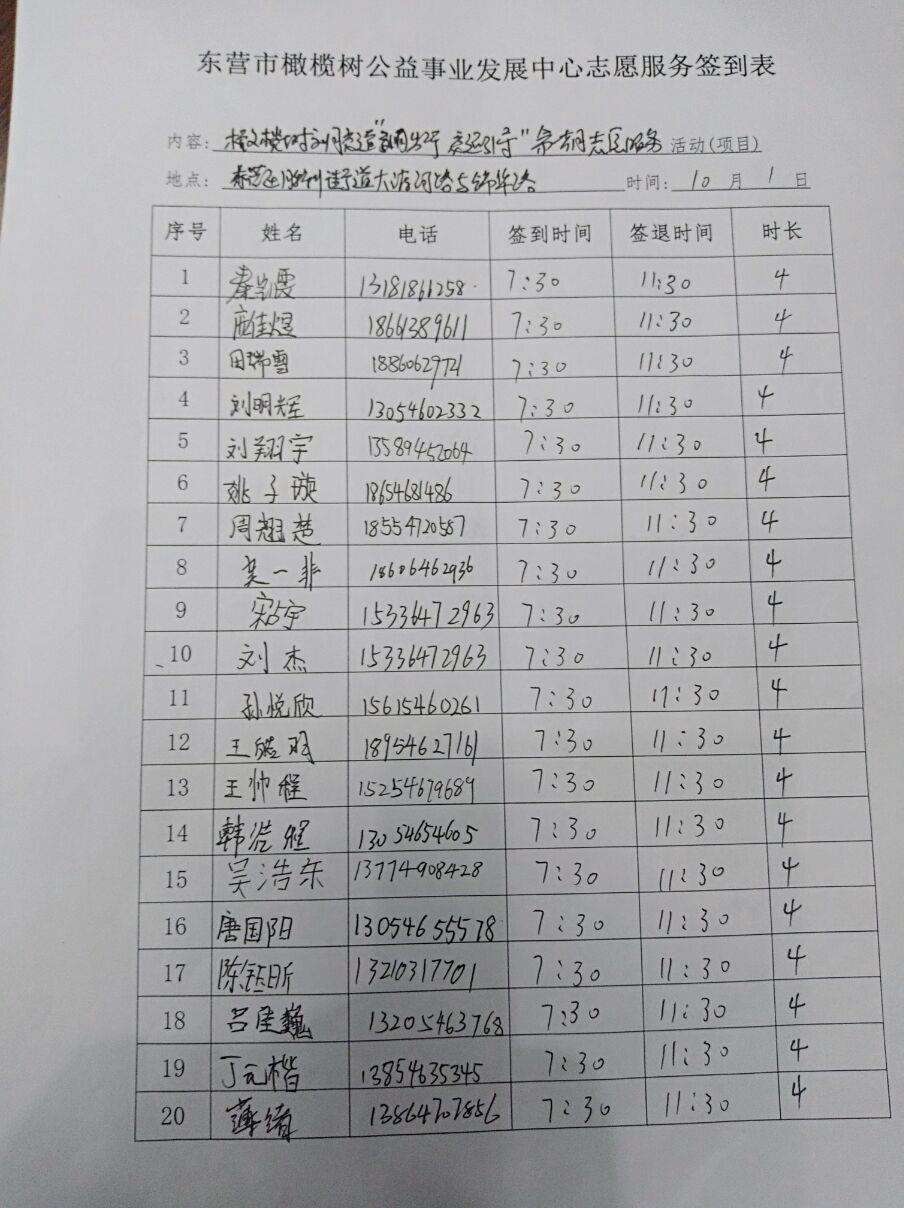 东营市橄榄树公益事业发展中心志愿服务签到表
内容： 志愿服务 活动(项目)
地点： 街道大渡河路与 路 时间： 10 月 1 日
序号 姓名 电话 签到时间 签退时间 时长
1 13181861258 7:30 11:30 4
2 18661389611 7:30 11:30 4
3 田瑞雪 18860629721 7:30 11:30 4
4 刘明辉 13054602332 7:30 11:30 4
5 刘翔宇 13589452064 7:30 11:30 4
6 姚子璇 18654681486 7:30 11:30 4
7 周翘楚 18554720587 7:30 11:30 4
8 一非 18606462936 7:30 11:30 4
9 宇 15336472963 7:30 11:30 4
10 刘杰 15336472963 7:30 11:30 4
11 孙悦欣 15615460261 7:30 11:30 4
12 王 羽 18954627161 7:30 11:30 4
13 王帅程 15254679689 7:30 11:30 4
14 韩浩程 13054654605 7:30 11:30 4
15 吴浩东 13774908428 7:30 11:30 4
16 唐国阳 13054655578 7:30 11:30 4
17 陈钰昕 13210317701 7:30 11:30 4
18 吕 巍 13205463768 7:30 11:30 4
19 丁元楷 13854635345 7:30 11:30 4
20 薄 13864707856 7:30 11:30 4